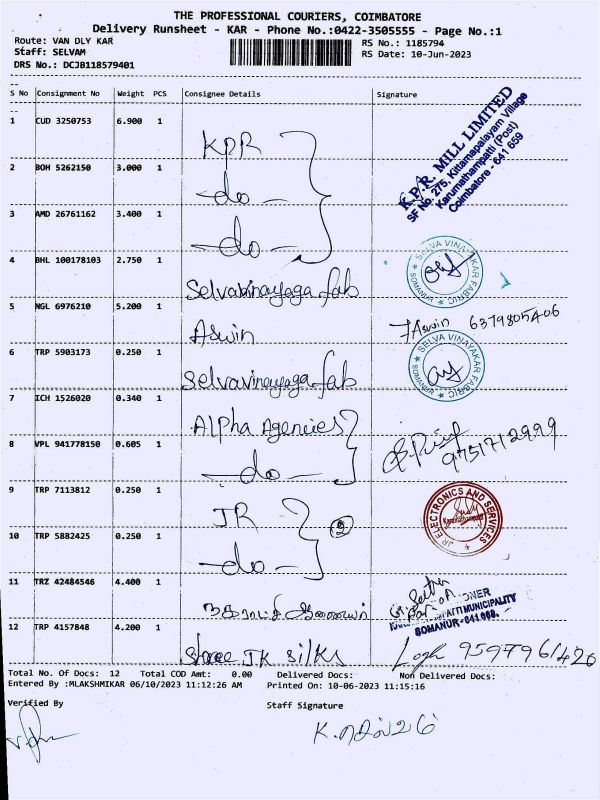 THE PROFESSIONAL COURIERS, COIMBATORE
Delivery Runsheet - KAR - Phone No.:0422-3505555 - Page No.:1
Route: VAN DLY KAR RS No.: 1185794
Staff: SELVAM RS Date: 10-Jun-2023
DRS No.: DCJB118579401
S No Consignment No Weight PCS Consignee Details Signature
1 CUD 3250753 6.900 1 KPR
K.P.R. MILL LIMITED
SF No. 275, Kittampalayam Village
Karumathampatti (Post)
Coimbatore - 641 659
2 BOH 5262150 3.000 1 -do-
3 AMD 26761162 3.400 1 -do-
4 BHL 100178103 2.750 1 Selvavinayaga fab
SELVA VINAYAKAR FABRIC
SOMANUR
5 NGL 6976210 5.200 1 Aswin Aswin
6 TRP 5903173 0.250 1 Selvavinayaga fab
SELVA VINAYAKAR FABRIC
SOMANUR
7 ICH 1526020 0.340 1 Alpha Agencies
8 VPL 941778150 0.605 1 -do- 9751712999
9 TRP 7113812 0.250 1 JR 2
JR ELECTRONICS AND SERVICES
10 TRP 5882425 0.250 1 -do-
11 TRZ 42484546 4.400 1
MUNICIPALITY
SOMANUR - 641 668.
12 TRP 4157848 4.200 1 Shree JK Silks
Total No. Of Docs: 12 Total COD Amt: 0.00 Delivered Docs: Non Delivered Docs:
Entered By :MLAKSHMIKAR 06/10/2023 11:12:26 AM Printed On: 10-06-2023 11:15:16
Verified By Staff Signature